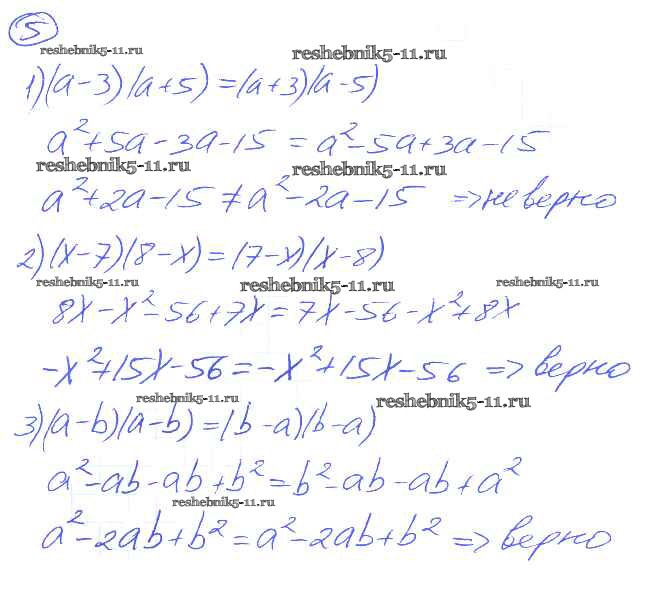 5
reshebnik5-11.ru reshebnik5-11.ru
1)(a-3)(a+5)=(a+3)(a-5)
a²+5a-3a-15=a²-5a+3a-15
reshebnik5-11.ru reshebnik5-11.ru
a²+2a-15≠a²-2a-15 =>не верно
2)(x-7)(8-x)=(7-x)(x-8)
reshebnik5-11.ru reshebnik5-11.ru reshebnik5-11.ru
8x-x²-56+7x=7x-56-x²+8x
-x²+15x-56=-x²+15x-56 => верно
reshebnik5-11.ru reshebnik5-11.ru
3)(a-b)(a-b)=(b-a)(b-a)
a²-ab-ab+b²=b²-ab-ab+a²
reshebnik5-11.ru
a²-2ab+b²=a²-2ab+b² => верно